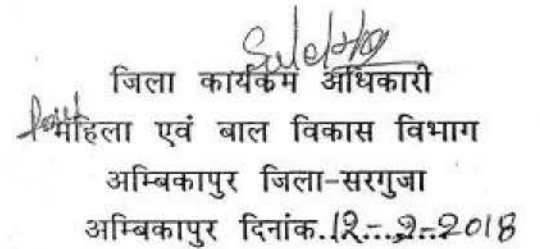 जिला कार्यकम अधिकारी
महिला एवं बाल विकास विभाग
अम्बिकापुर जिला-सरगुजा
अम्बिकापुर दिनांक.12-9-2018